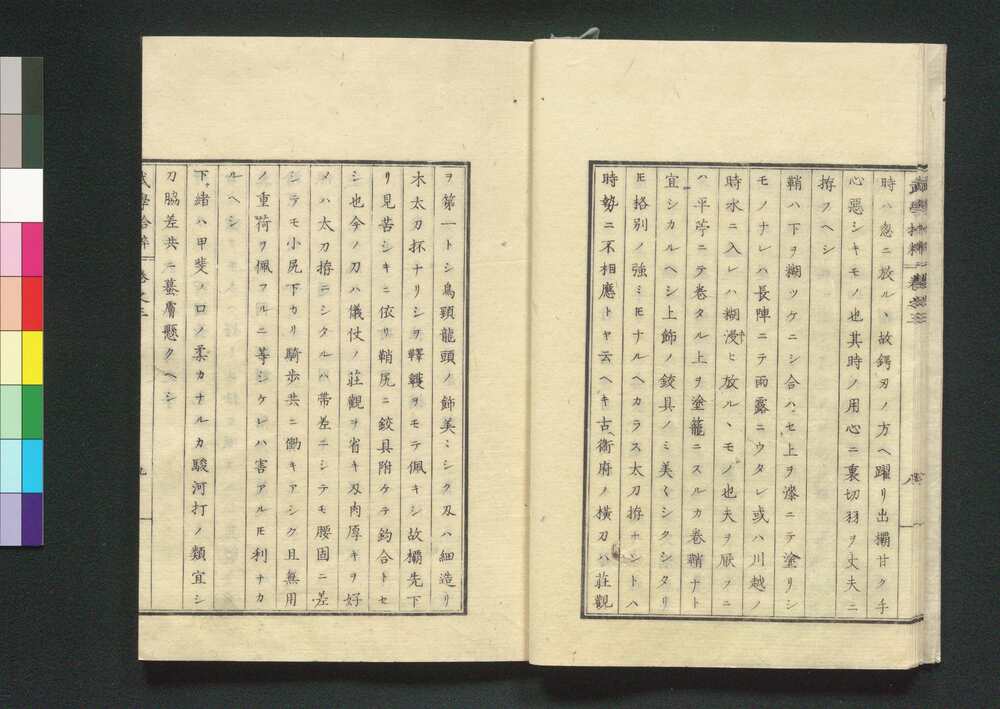 時ハ忽ニ放ルヽ故鍔刃ノ方ヘ躍リ出欛甘ク手
心惡シキモノ也其時ノ用心ニ裏切羽ヲ丈夫ニ
拵フヘシ
鞘ハ下ヲ糊ツケニシ合ハセ上ヲ漆ニテ塗リシ
モノナレハ長陣ニテ雨露ニウタレ或ハ川越ノ
時水ニ入レハ糊浸ヒ放ルヽモノ也夫ヲ厭フニ
ハ平苧ニテ卷タル上ヲ塗籠ニスルカ卷鞘ナト
宜シカルヘシ上飾ノ鉸具ノミ美〱シクシタリ
𪜈格別ノ強ミ𪜈ナルヘカラス太刀拵ナントハ
時勢ニ不相應トヤ云ヘキ古衛府ノ横刀ハ莊觀
ヲ第一トシ鳥頸龍頭ノ飾美ミシク刄ハ細造リ
木太刀抔ナリシヲ韗韈ヲモテ佩キシ故欛先下
リ見苦シキニ依リ鞘尻ニ鉸具附ケテ鈞合トセ
シ也今ノ刀ハ儀仗ノ莊觀ヲ省キ刄肉厚キヲ好
メハ太刀拵ニシタルハ帶差ニシテモ腰固ニ差
シテモ小尻下カリ騎歩共ニ働キアシク且無用
ノ重荷ヲ佩フルニ等シケレハ害アル𪜈利ナカ
ルヘシ
下緒ハ甲斐ノ口ノ柔カナルカ駿河打ノ類宜シ
刀脇差共ニ蟇膚懸クヘシ
武學拾粹 卷之三 九